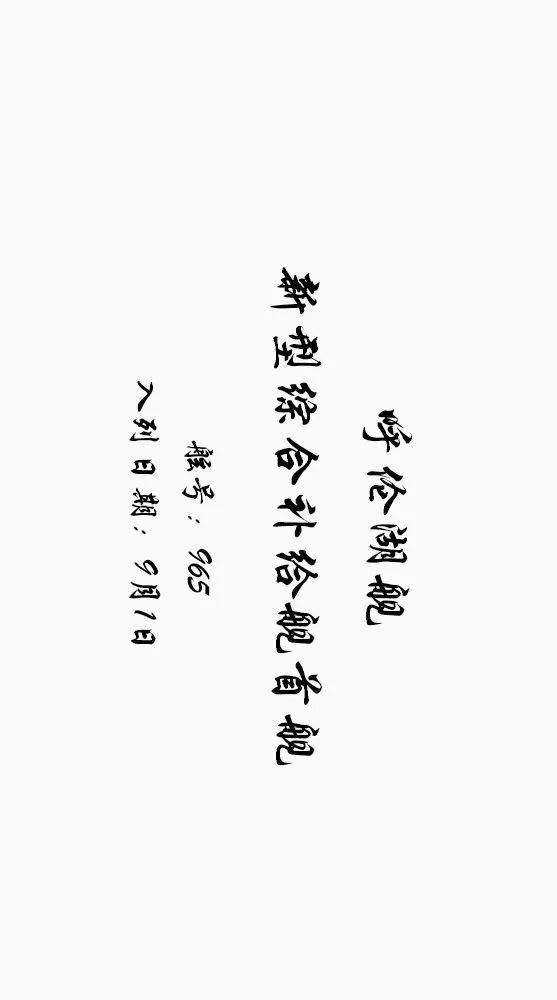 呼伦湖舰
新型综合补给舰首舰
舷号：965
入列日期：9月1日